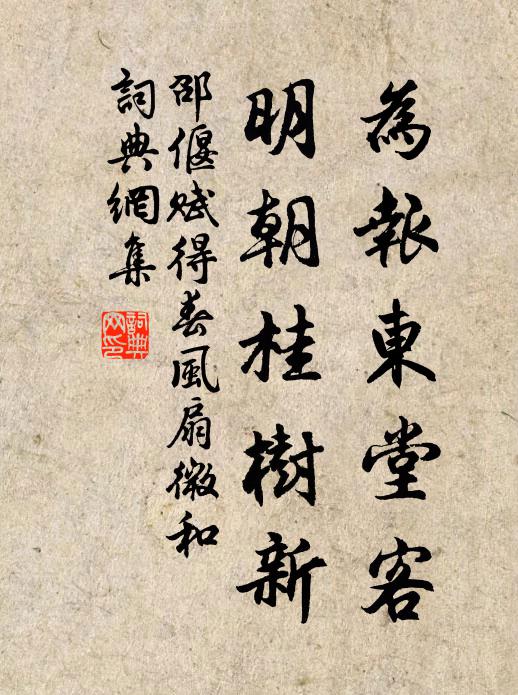 為報東堂客
明朝桂樹新
邵偃賦得春風扇微和
詞典網集
詞典網印